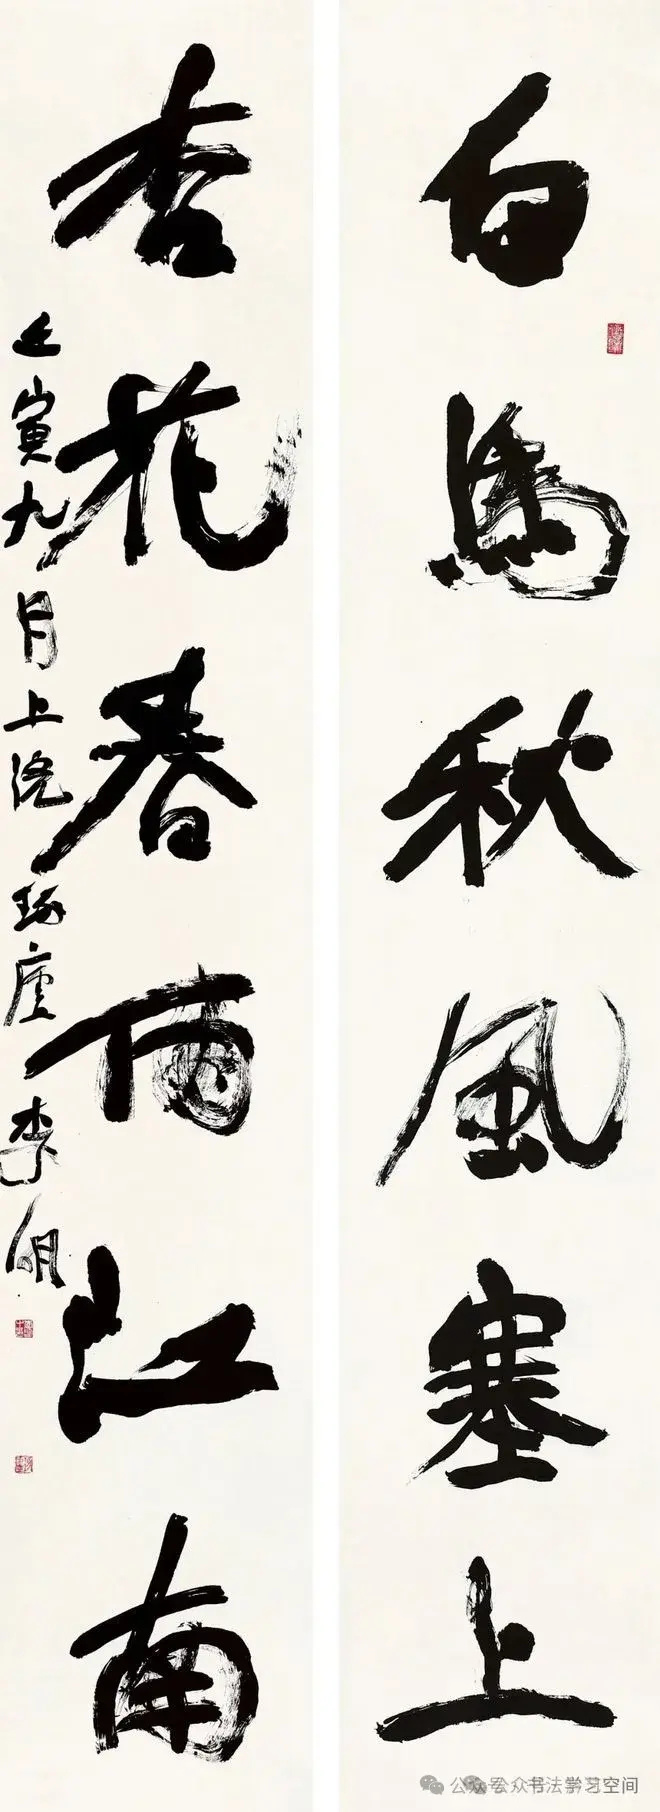 白馬秋風塞上
杏花春雨江南
壬寅九月上浣 琢廬 李明
公众号 公众书法学习空间